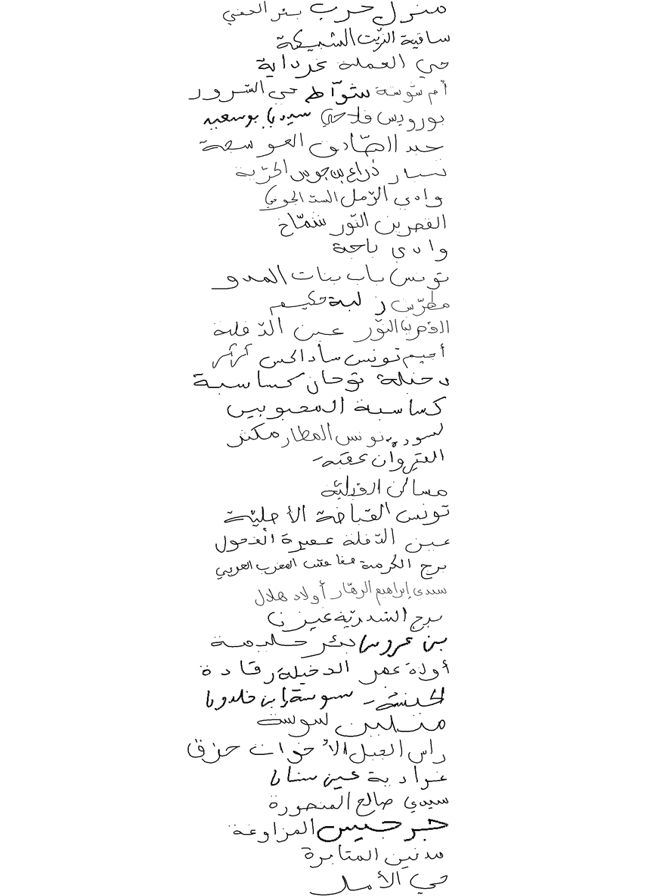 منزل حرب بئر الحفي
ساقية الزيت الشيحية
حي العملة غرداية
أم شوشة شواط حي السرور
بورويس فلاحي سيدي بوسعيد
الصادق العوسجة
ذراع بن جودر الحرية
وادي الرمل السد الجوفي
القصرين النور شماخ
وادي باجة
تونس باب بنات المدو
مطرش زلبة حكيم
القصرين النور عين الدفلة
أميم تونس سادالحس
دخيلة توجان كساسبة
كساسبة المعبوبين
تونس المطار مكثر
القيروان عقبة
مساكن القبلية
تونس القباضة الأصلية
عين الدفلة عميرة الفحول
برج الكرمة صفاقس المغرب العربي
سيدي إبراهيم الزهار أولاد هلال
برج السدرية
بن عروس بئر حليمة
أولاد عمر الدخيلة رقادة
سوسة إبن خلدون
متلين سوسة
راس الجبل الأخوات حزق
غرادية
سيدي صالح المنصورة
جرجيس المزاوغة
مدنين المتابرة
حي الأمل